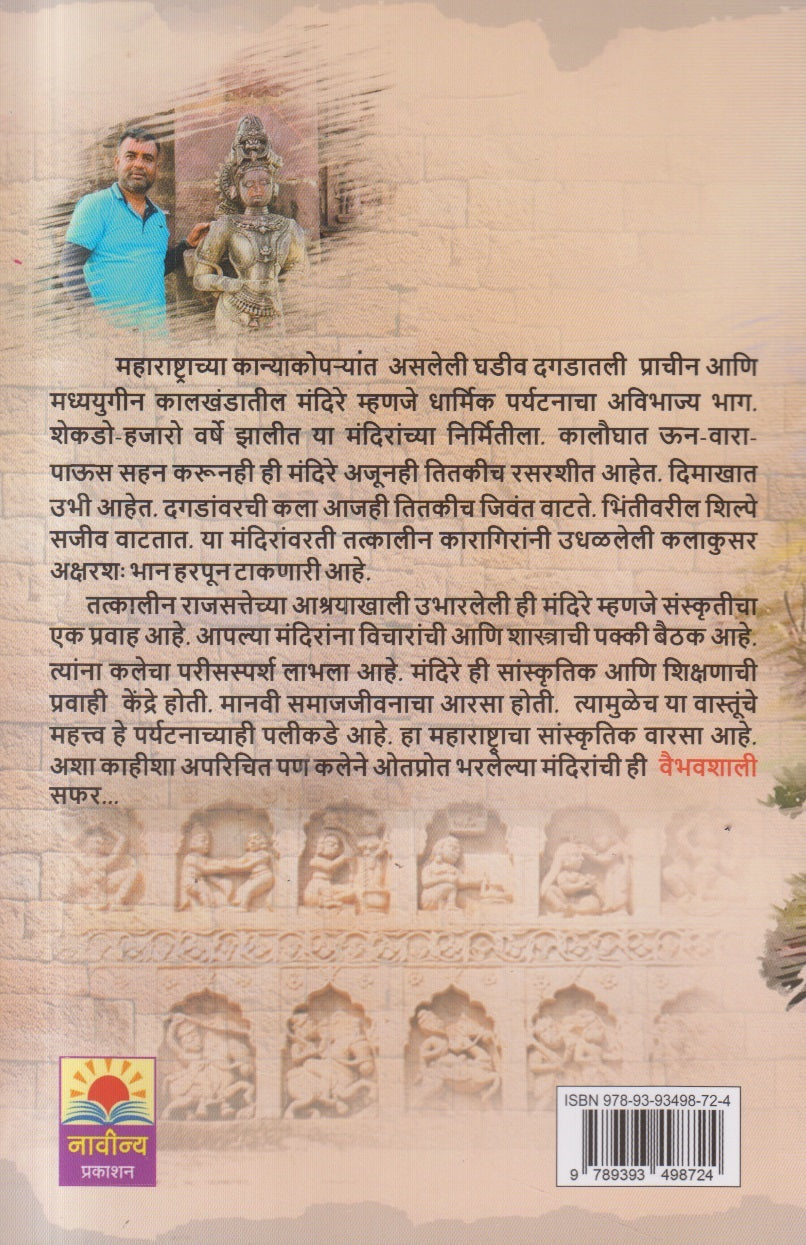 महाराष्ट्राच्या कान्याकोपऱ्यांत असलेली घडीव दगडातली प्राचीन आणि
मध्ययुगीन कालखंडातील मंदिरे म्हणजे धार्मिक पर्यटनाचा अविभाज्य भाग.
शेकडो-हजारो वर्षे झालीत या मंदिरांच्या निर्मितीला. कालौघात ऊन-वारा-
पाऊस सहन करूनही ही मंदिरे अजूनही तितकीच रसरशीत आहेत. दिमाखात
उभी आहेत. दगडांवरची कला आजही तितकीच जिवंत वाटते. भिंतीवरील शिल्पे
सजीव वाटतात. या मंदिरांवरती तत्कालीन कारागिरांनी उधळलेली कलाकुसर
अक्षरशः भान हरपून टाकणारी आहे.
तत्कालीन राजसत्तेच्या आश्रयाखाली उभारलेली ही मंदिरे म्हणजे संस्कृतीचा
एक प्रवाह आहे. आपल्या मंदिरांना विचारांची आणि शास्त्राची पक्की बैठक आहे.
त्यांना कलेचा परीसस्पर्श लाभला आहे. मंदिरे ही सांस्कृतिक आणि शिक्षणाची
प्रवाही केंद्रे होती. मानवी समाजजीवनाचा आरसा होती. त्यामुळेच या वास्तूंचे
महत्त्व हे पर्यटनाच्याही पलीकडे आहे. हा महाराष्ट्राचा सांस्कृतिक वारसा आहे.
अशा काहीशा अपरिचित पण कलेने ओतप्रोत भरलेल्या मंदिरांची ही वैभवशाली
सफर...
नावीन्य
प्रकाशन
ISBN 978-93-93498-72-4
9 789393 498724